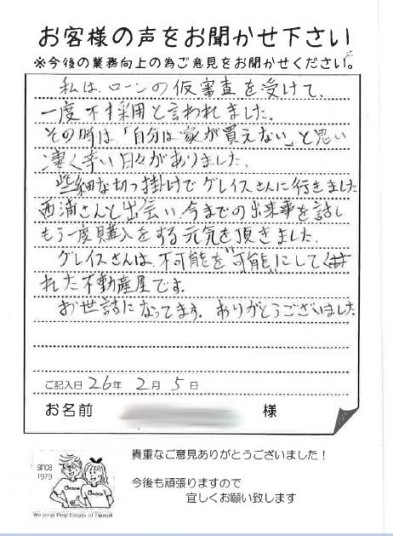 お客様の声をお聞かせ下さい
※今後の業務向上の為ご意見をお聞かせください。
私は、ローンの仮審査を受けて、
一度不採用と言われました。
その時は「自分は家が買えない」と思い
凄く辛い日々がありました。
些細な切っ掛けでグレイスさんに行きました
西浦さんと出会い、今までの出来事を話し
もう一度購入をする元気を頂きました。
グレイスさんは、不可能を"可能"にしてく
れた不動産屋です。
お世話になってます。ありがとうございました
ご記入日 26年 2月 5日
お名前 様
貴重なご意見ありがとうございました!
今後も頑張りますので
宜しくお願い致します
since
1979